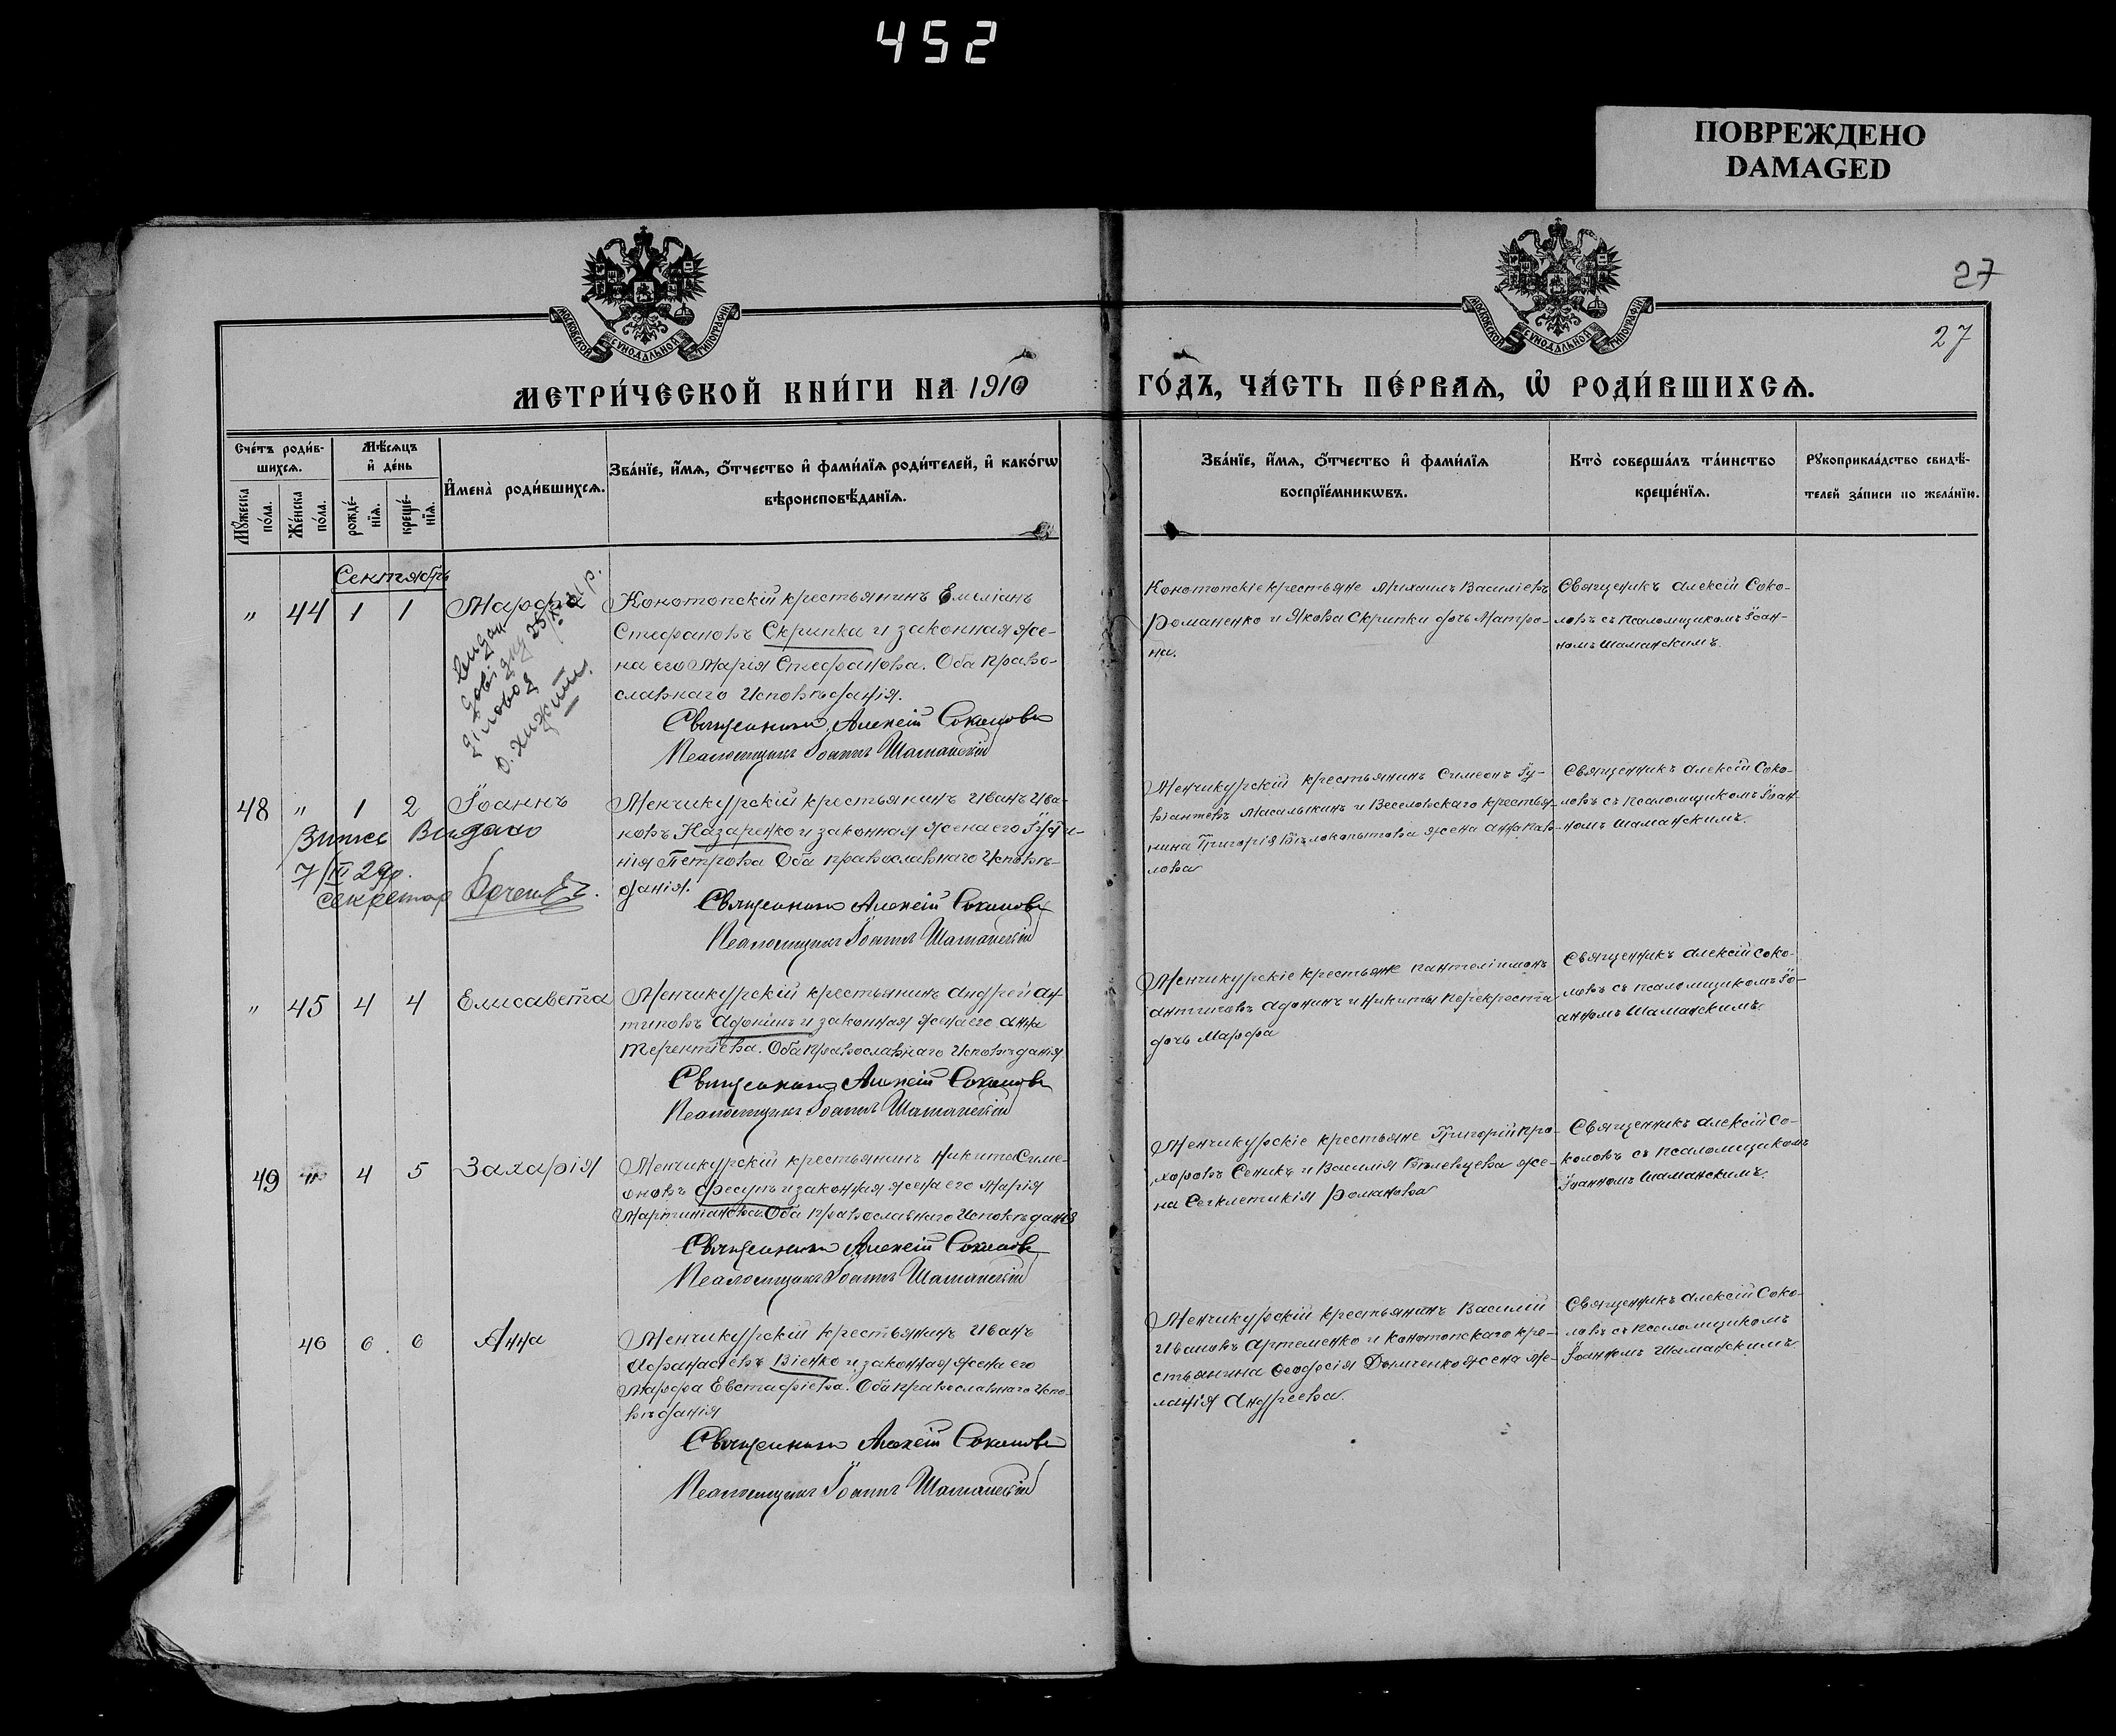 452
ПОВРЕЖДЕНО
DAMAGED
27
27
МОСКОВСКОЙ СѴНОДАЛЬНОЙ ТИПОГРАФІИ
МОСКОВСКОЙ СѴНОДАЛЬНОЙ ТИПОГРАФІИ
МЕТРИ́ЧЕСКОЙ КНИ́ГИ НА 1910
ГО́ДЪ, ЧА́СТЬ ПЕ́РВАѦ, Ѿ РОДИ́ВШИХСѦ.
Сче́тъ роди́в-
шихсѧ.
Мѣ́сѧцъ
и҆ де́нь
Мꙋ́жеска
по́ла.
Же́нска
по́ла.
рожде́-
нїѧ.
креще́-
нїѧ.
И҆мена̀ роди́вшихсѧ.
Зва́нїе, и҆́мѧ, ѻ҆́тчество и҆ фами́лїѧ роди́телей, и҆ како́гѡ
вѣроисповѣ́данїѧ.
Зва́нїе, и҆́мѧ, ѻ҆́тчество и҆ фами́лїѧ
воспрїе́мникѡвъ.
Кто̀ соверша́лъ та́инство
креще́нїѧ.
Рꙋкоприкла́дство свидѣ́-
телей за́писи по жела́нїю.
Сентябрь
" 44 1 1 Марфа
Конотопскій крестьянинъ Емеліанъ
Стефановъ Скрипка и законная же-
на его Марія Стефанова. Оба право-
славнаго Исповѣданія.
Священникъ Алексій Соколовъ
Псаломщикъ Іоаннъ Шаманскій
Конотопскіе крестьяне Михаилъ Василіевъ
Романенко и Якова Скрипки дочь Матро-
на.
Священникъ Алексій Соко-
ловъ съ псаломщикомъ Іоан-
номъ Шаманскимъ.
48 " 1 2 Іоаннъ
Випись Видано
7/III 29р.
секретар
Менчикурскій крестьянинъ Иванъ Ива-
новъ Назаренко и законная жена его Іуста-
нія Петрова Оба православнаго Исповѣ-
данія.
Священникъ Алексій Соколовъ
Псаломщикъ Іоаннъ Шаманскій
Менчикурскій крестьянинъ Симеонъ Іу-
віантевъ Масалыкинъ и Веселовскаго крестья-
нина Григорія Бѣлокопытова жена Анна Пав-
лова
Священникъ Алексій Соко-
ловъ съ псаломщикомъ Іоан-
номъ Шаманскимъ.
" 45 4 4 Елисавета
Менчикурскій крестьянинъ Андрей Ан-
типовъ Адонинъ и законная жена его Анна
Терентіева. Оба православнаго Исповѣданія.
Священникъ Алексій Соколовъ
Псаломщикъ Іоаннъ Шаманскій
Менчикурскіе крестьяне Пантелеимонъ
Антиповъ Адонинъ и Никиты Перекреста
дочь Марфа
Священникъ Алексій Соко-
ловъ съ псаломщикомъ Іо-
анномъ Шаманскимъ.
49 " 4 5 Захарія
Менчикурскій крестьянинъ Никита Симе-
оновъ Фесунъ и законная жена его Марія
Мартиніанова. Оба православнаго Исповѣданія
Священникъ Алексій Соколовъ
Псаломщикъ Іоаннъ Шаманскій
Менчикурскіе крестьяне Григорій Про-
хоровъ Сеникъ и Василія Бѣлевцева же-
на Сегклетикія Романова
Священникъ Алексій Со-
коловъ съ псаломщикомъ
Іоанномъ Шаманскимъ.
46 6 6 Анна
Менчикурскій крестьянинъ Иванъ
Афанасіевъ Віенко и законная жена его
Марфа Евстафіева. Оба православнаго Испо-
вѣданія
Священникъ Алексій Соколовъ
Псаломщикъ Іоаннъ Шаманскій
Менчикурскій крестьянинъ Василій
Ивановъ Артеменко и Конотопскаго кре-
стьянина Ѳеодосія Дымченко жена Ме-
ланія Андреева.
Священникъ Алексій Соко-
ловъ съ псаломщикомъ
Іоанномъ Шаманскимъ